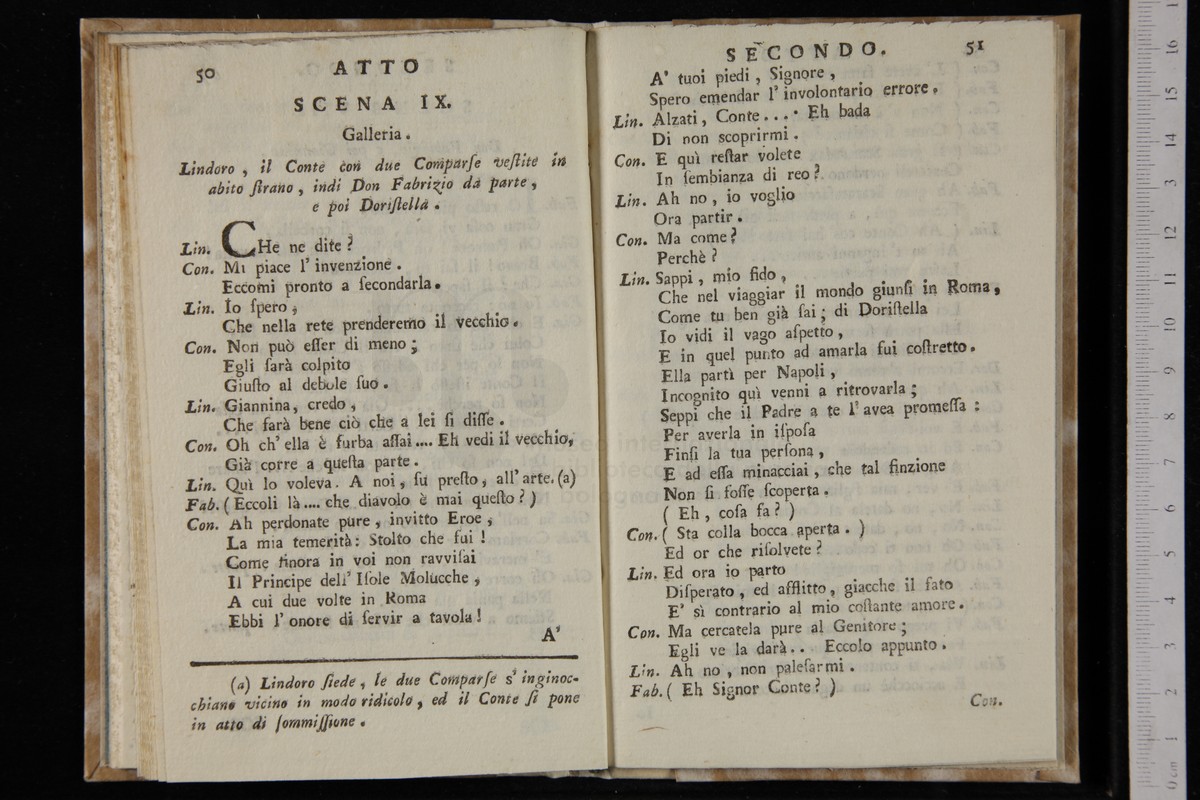 50 ATTO
SCENA IX.
Galleria.
Lindoro, il Conte con due Comparſe veſtite in
abito ſtrano, indi Don Fabrizio da parte,
e poi Doriſtella.
Lin. CHe ne dite?
Con. Mi piace l' invenzione.
Eccomi pronto a ſecondarla.
Lin. Io ſpero,
Che nella rete prenderemo il vecchio.
Con. Non può eſſer di meno;
Egli ſarà colpito
Giuſto al debole ſuo.
Lin. Giannina, credo,
Che farà bene ciò che a lei ſi diſſe.
Con. Oh ch' ella è furba aſſai.... Eh vedi il vecchio,
Già corre a queſta parte.
Lin. Quì lo voleva. A noi, ſu preſto, all' arte. (a)
Fab. ( Eccoli là.... che diavolo è mai queſto? )
Con. Ah perdonate pure, invitto Eroe,
La mia temerità: Stolto che fui!
Come finora in voi non ravviſai
Il Principe dell' Iſole Molucche,
A cui due volte in Roma
Ebbi l' onore di ſervir a tavola!
A'
(a) Lindoro ſiede, le due Comparſe s' inginoc-
chiano vicino in modo ridicolo, ed il Conte ſi pone
in atto di ſommiſſione.
SECONDO. 51
A' tuoi piedi, Signore,
Spero emendar l' involontario errore.
Lin. Alzati, Conte.... Eh bada
Di non scoprirmi.
Con. E quì reſtar volete
In ſembianza di reo?
Lin. Ah no, io voglio
Ora partir.
Con. Ma come?
Perchè?
Lin. Sappi, mio fido,
Che nel viaggiar il mondo giunſi in Roma,
Come tu ben già ſai; di Doriſtella
Io vidi il vago aſpetto,
E in quel punto ad amarla fui coſtretto.
Ella partì per Napoli,
Incognito quì venni a ritrovarla;
Seppi che il Padre a te l' avea promeſſa:
Per averla in iſpoſa
Finſi la tua perſona,
E ad eſſa minacciai, che tal finzione
Non ſi foſſe ſcoperta.
( Eh, coſa fa? )
Con. ( Sta colla bocca aperta. )
Ed or che riſolvete?
Lin. Ed ora io parto
Diſperato, ed afflitto, giacche il fato
E' sì contrario al mio coſtante amore.
Con. Ma cercatela pure al Genitore;
Egli ve la darà.. Eccolo appunto.
Lin. Ah no, non paleſarmi.
Fab. ( Eh Signor Conte? )
Con.